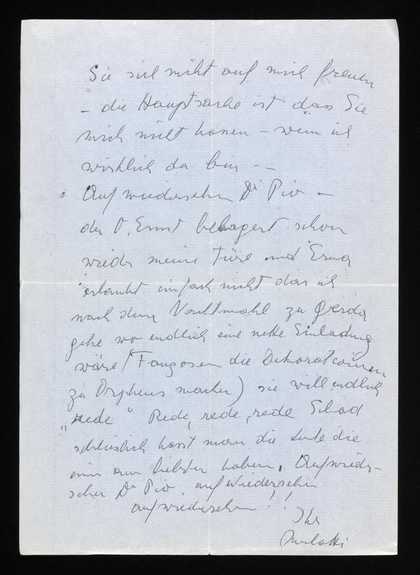 Sie sich nicht auf mich freuen
– die Hauptsache ist dass Sie
mich nicht hassen – wenn ich
wirklich da bin – –
Auf wiedersehn Dr Pio –
der O. Ernst belagert schon
wieder meine Türe und Erna
erlaubt einfach nicht das ich
nach dem Nachtmahl zu Gerda
gehe wo endlich eine nette Einladung
wäre (Franzosen die Dekorationen
zu Orpheus machen) sie will endlich
"Rede" Rede, rede, rede
schliesslich hasst man die Leute die
einen am liebsten haben. Aufwieder-
sehen Dr Pio, auf wiedersehn
auf wiedersehn!!
Ihr